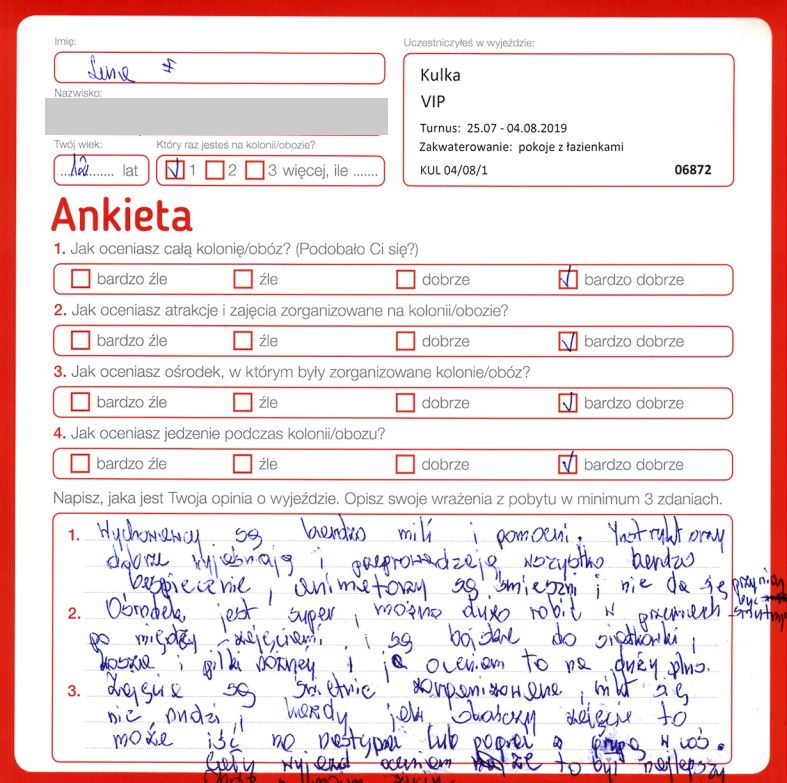 Imię:
Lena
Nazwisko:
Twój wiek:
12 lat
Który raz jesteś na kolonii/obozie?
1 2 3 więcej, ile .......
Uczestniczyłeś w wyjeździe:
Kulka
VIP
Turnus: 25.07 - 04.08.2019
Zakwaterowanie: pokoje z łazienkami
KUL 04/08/1 06872
Ankieta
1. Jak oceniasz całą kolonię/obóz? (Podobało Ci się?)
bardzo źle źle dobrze bardzo dobrze
2. Jak oceniasz atrakcje i zajęcia zorganizowane na kolonii/obozie?
bardzo źle źle dobrze bardzo dobrze
3. Jak oceniasz ośrodek, w którym były zorganizowane kolonie/obóz?
bardzo źle źle dobrze bardzo dobrze
4. Jak oceniasz jedzenie podczas kolonii/obozu?
bardzo źle źle dobrze bardzo dobrze
Napisz, jaka jest Twoja opinia o wyjeździe. Opisz swoje wrażenia z pobytu w minimum 3 zdaniach.
1. Wychowawcy są bardzo mili i pomocni. Instruktorzy
dobrze wyjaśniają i przeprowadzają wszystko bardzo
bezpiecznie, animatorzy są śmieszni i nie da się przy nich
być
2. Ośrodek jest super, można dużo robić w przerwach
po między zajęciami, są boiska do siatkówki,
kosza i piłki nożnej i ja oceniam to na duży plus.
3. Zajęcia są świetnie zorganizowane, nikt się
nie nudzi, każdy jak skończy zajęcie to
może iść na następne lub pograć z grupą w coś.
Cały wyjazd oceniam że to był najlepszy
obóz w moim życiu